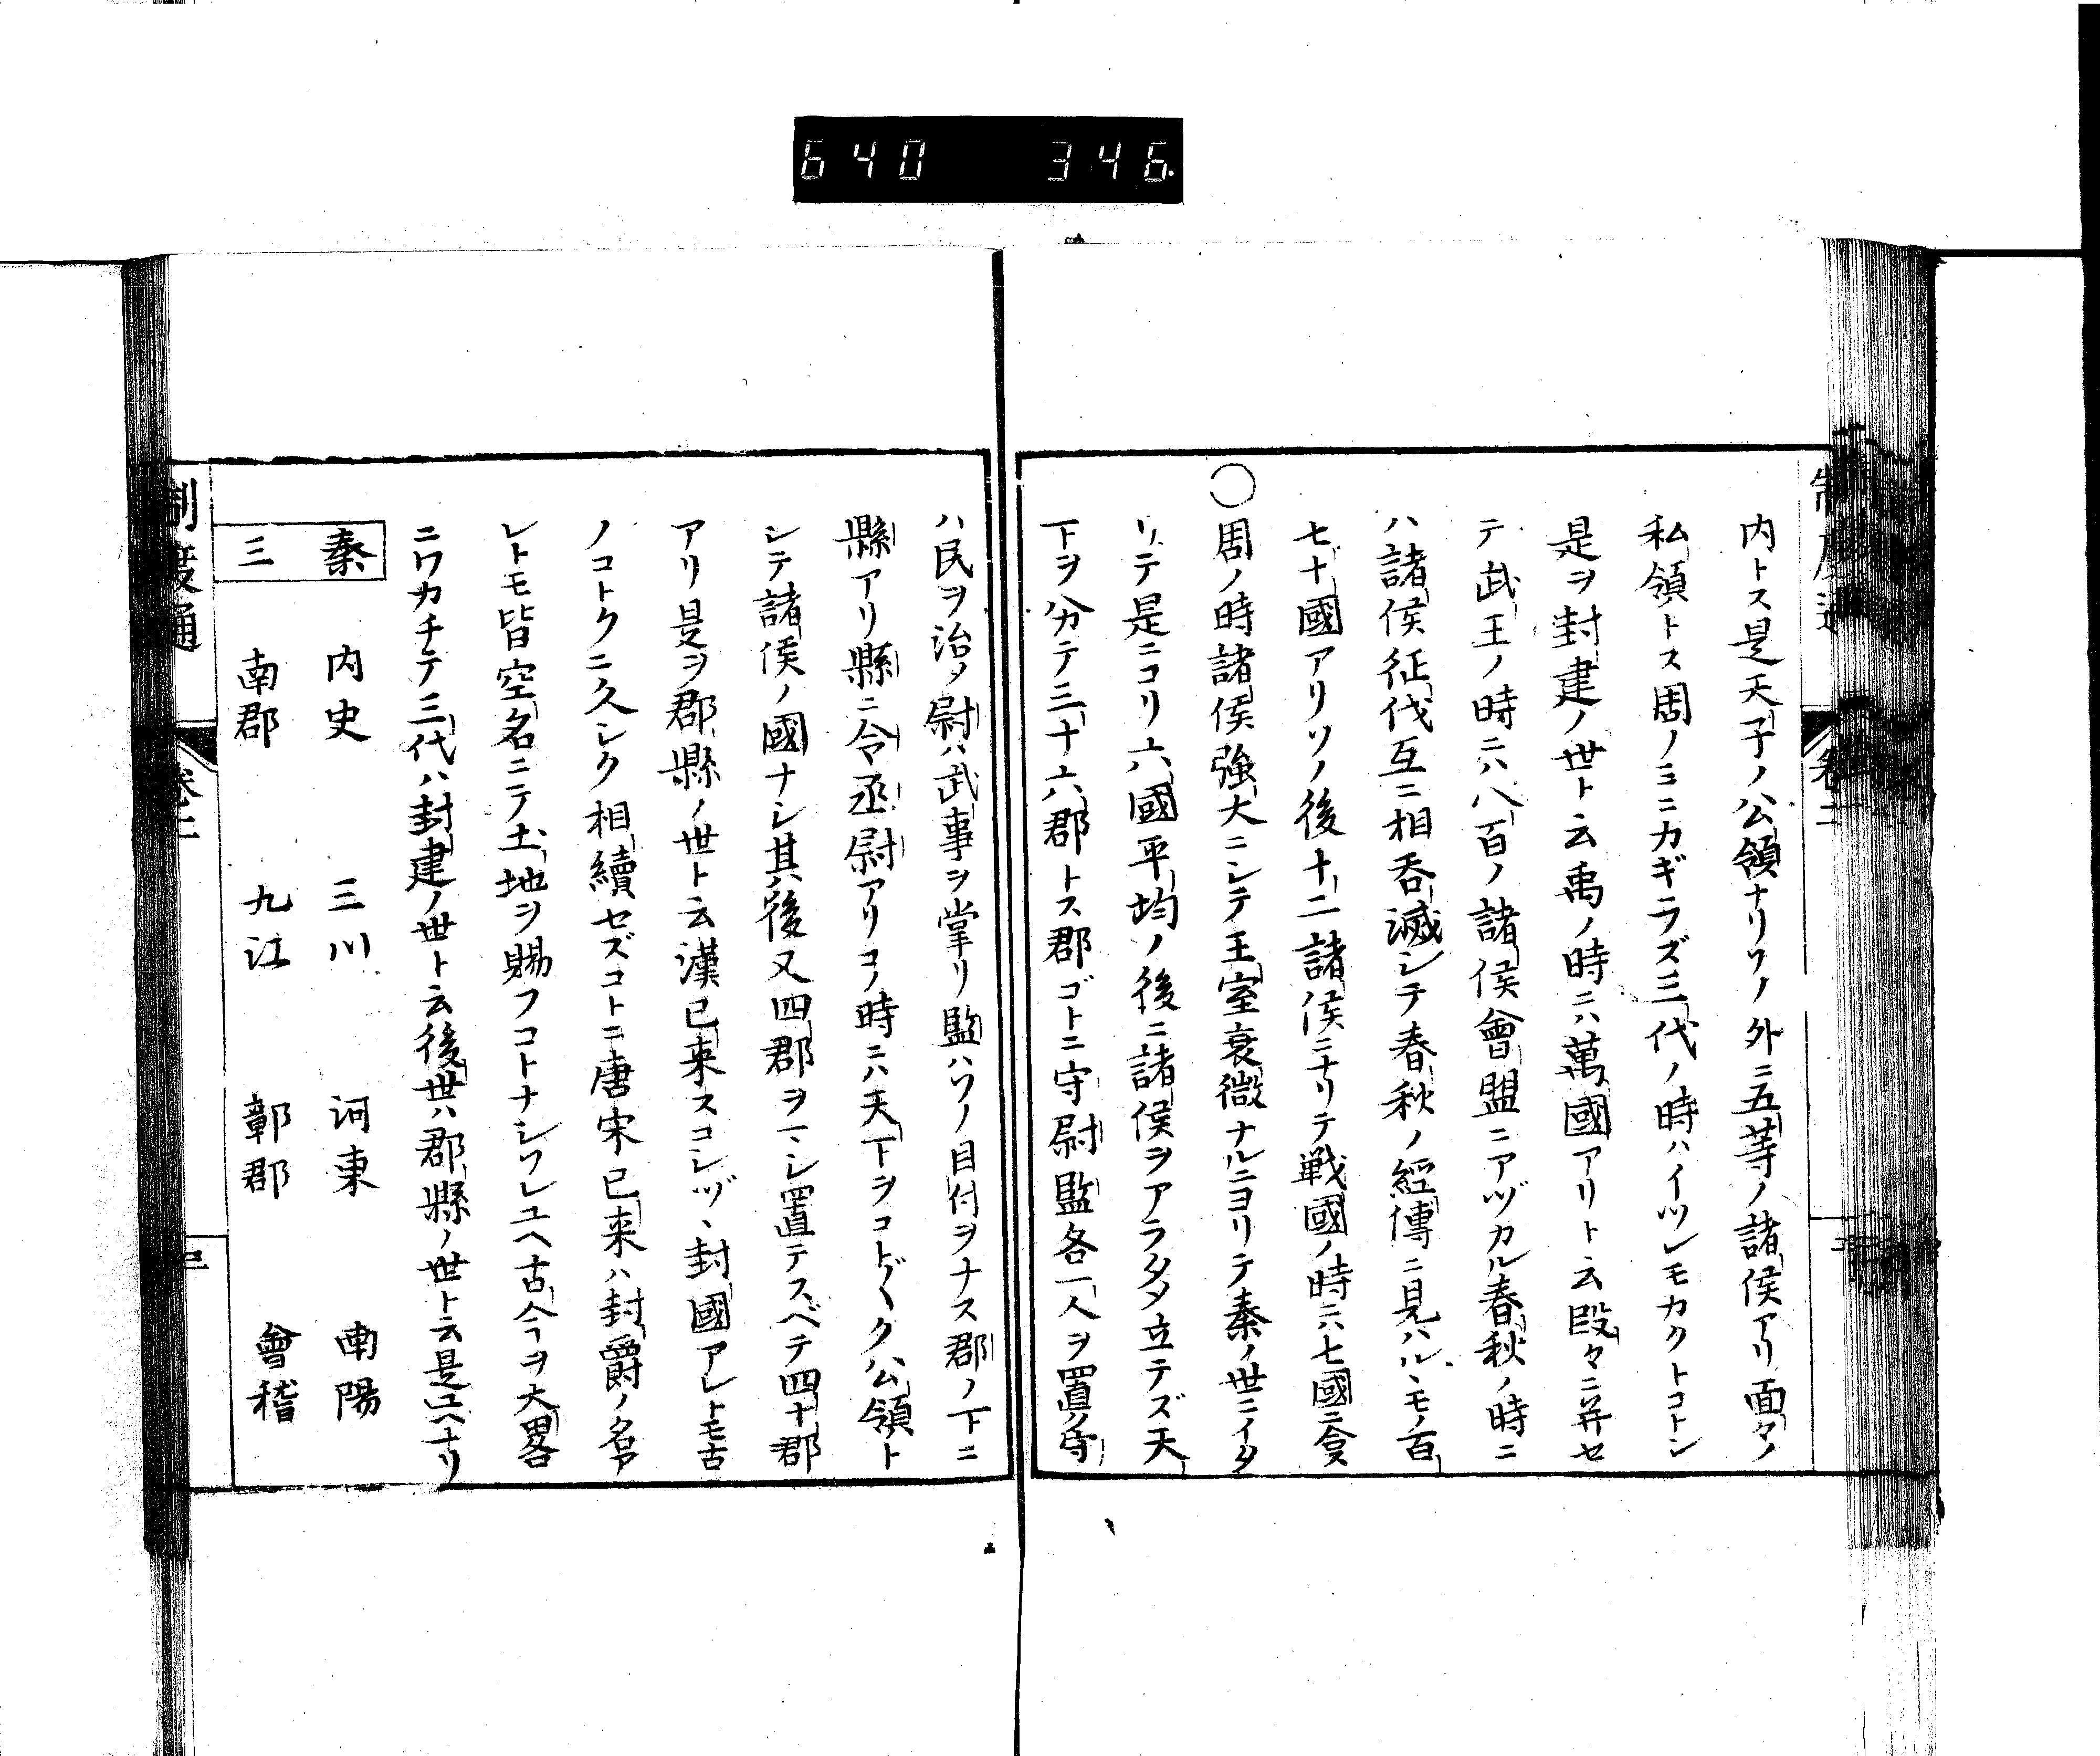 640 346
制度通 卷二 二
内トス是天子ノ公領ナリソノ外ニ五等ノ諸侯アリ面々ノ
私領トス周ノミニカギラズ三代ノ時ハイツレモカクトコトシ
是ヲ封建ノ世ト云禹ノ時ニハ萬國アリト云段々ニ并セ
テ武王ノ時ニハ八百ノ諸侯會盟ニアヅカル春秋ノ時ニ
ハ諸侯征伐互ニ相呑滅シテ春秋ノ經傳ニ見ハル丶モノ百
七十國アリソノ後十二諸侯ニナリテ戰國ノ時ニハ七國ニ合ス
〇周ノ時諸侯強大ニシテ王室衰微ナルニヨリテ秦ノ世ニイタ
リテ是ニコリ六國平均ノ後ニ諸侯ヲアラタタ立テズ天
下ヲ分テ三十六郡トス郡ゴトニ守尉監各一人ヲ置ク守
ハ民ヲ治メ尉ハ武事ヲ掌リ監ハソノ目付ヲナス郡ノ下ニ
縣アリ縣ニ令丞尉アリコノ時ニハ天下ヲコト〴〵ク公領ト
シテ諸侯ノ國ナシ其後又四郡ヲマシ置テスベテ四十郡
アリ是ヲ郡縣ノ世ト云漢已来スコシヅ丶封國アレトモ古
ノコトクニ久シク相續セズコトニ唐宋已来ハ封爵ノ名ア
レトモ皆空名ニテ土地ヲ賜フコトナシソレユヘ古今ヲ大畧
ニワカチテ三代ハ封建ノ世ト云後世ハ郡縣ノ世ト云是ユヘナリ
秦 内史 三川 河東 南陽
三 南郡 九江 鄣郡 會稽
制度通 卷二 三